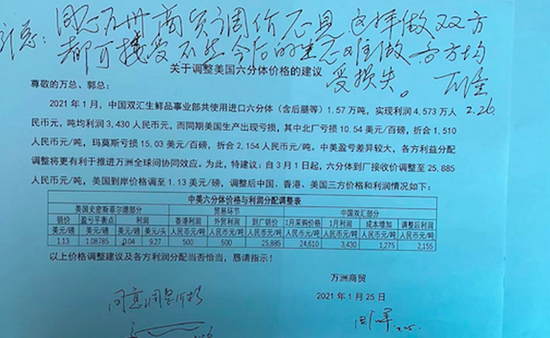 都可接受 不然今后的生意难做 各方均
受损失。
2.26
关于调整美国六分体价格的建议
尊敬的万总、郭总：
2021年1月，中国双汇生鲜品事业部共使用进口六分体（含后腿等）1.57万吨，实现利润4,573万人
民币元，吨均利润3,430人民币元，而同期美国生产出现亏损，其中北厂亏损10.54美元/百磅，折合1,510
人民币元/吨，玛莫斯亏损15.03美元/百磅，折合2,154人民币元/吨，中美盈亏差异较大，各方利益分配
调整将更有利于推进万洲全球间协同效应。为此，特建议：自3月1日起，六分体到厂接收价调整至25,885
人民币元/吨，美国到岸价格调至1.13美元/磅，调整后中国、香港、美国三方价格和利润情况如下：
中美六分体价格与利润分配调整表
美国史密斯菲尔德部分 贸易环节 中国双汇部分
销价 盈亏平衡点 利润 利润 香港利润 外贸利润 到厂销价 1月采购价格 1月利润 成本增加 调整后利润
美元/磅 美元/磅 美元/磅 美元/头 人民币元/吨 人民币元/吨 人民币元/吨 人民币元/吨 人民币元/吨 人民币元/吨 人民币元/吨
1.13 1.08785 0.04 9.27 500 500 25,885 24,610 3,430 1,275 2,155
以上价格调整建议及各方利润分配当否恰当，恳请指示！
万洲商贸
2021年1月25日
同意调整价格